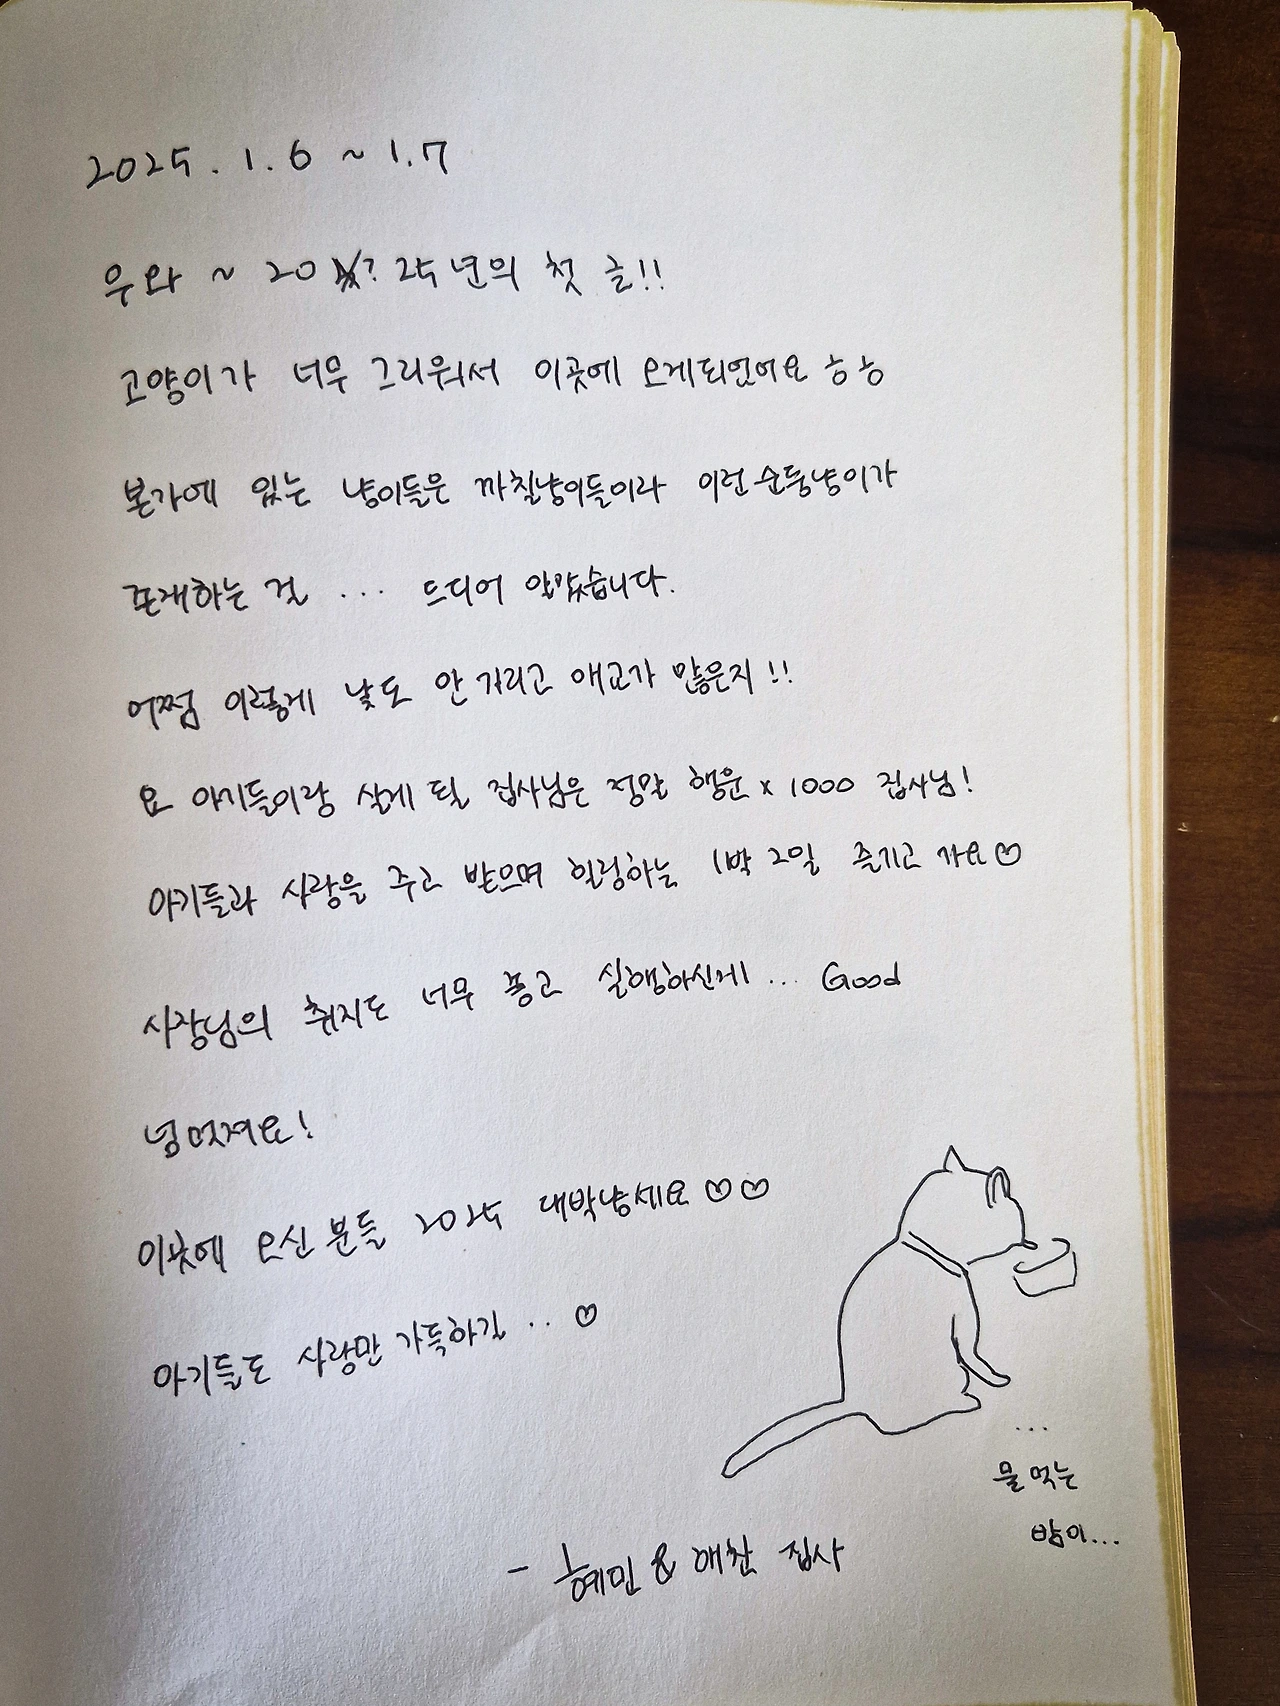 2025. 1. 6 ~ 1.7
우와 ~ 20 ? 25년의 첫 글!!
고양이가 너무 그리워서 이곳에 오게되었어요 ㅎㅎ
본가에 있는 냥이들은 까칠냥이들이라 이런 순둥냥이가
존재하는 걸 ... 드디어 알았습니다.
어쩜 이렇게 낯도 안 가리고 애교가 많은지!!
요 아기들이랑 살게 될 집사님은 정말 행운 x 1000 집사님!
아기들과 사랑을 주고 받으며 힐링하는 1박 2일 즐기고 가요♡
사장님의 취지도 너무 좋고 실행하신게 ... Good
넘 멋져요!
이곳에 오신 분들 2025 대박냥세요♡♡
아기들도 사랑만 가득하길 .. ♡
...
물 먹는
밤이...
- 혜민 & 애찬 집사